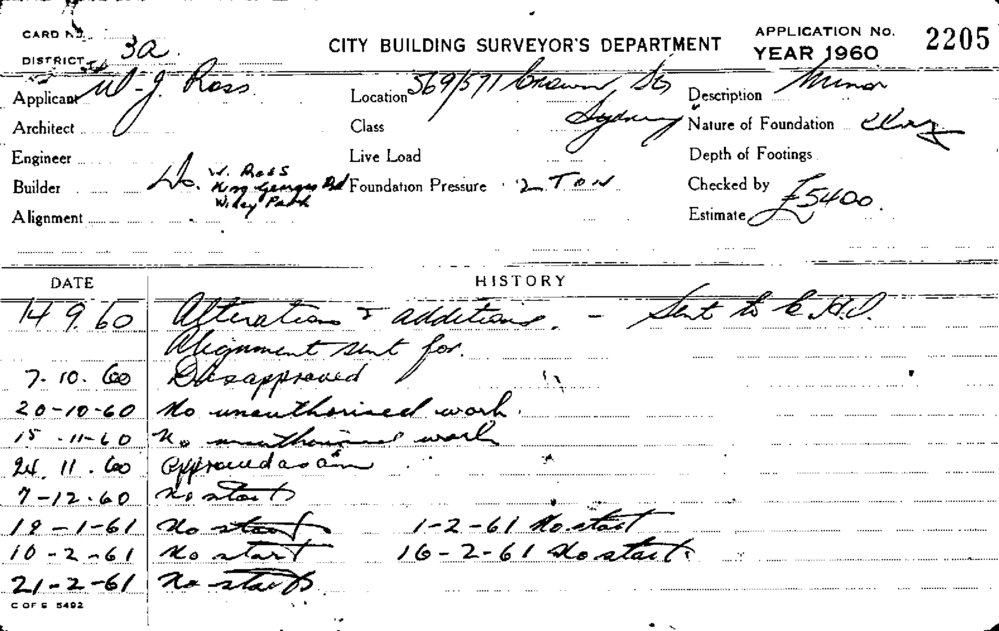 CARD No.
DISTRICT 3a.
CITY BUILDING SURVEYOR'S DEPARTMENT
APPLICATION No. 2205
YEAR 1960
Applicant W. J. Ross.
Location 569/571 Crown St Sydney
Description Minor
Architect
Class
Nature of Foundation Clay
Engineer
Live Load
Depth of Footings
Builder Do. W. Ross
King Georges Rd
Wiley Park
Foundation Pressure 2 TON
Checked by
Alignment
Estimate £5400.
DATE HISTORY
14 9. 60 Alterations & additions. - Sent to C.H.O.
Alignment sent for.
7. 10. 60 Disapproved
20-10-60 No unauthorised work.
15-11-60 No unauthorised work
24. 11. 60 Approved as am
7-12-60 No start
18-1-61 No start 1-2-61 No start
10-2-61 No start 16-2-61 No start
21-2-61 No start
C OF S 5492